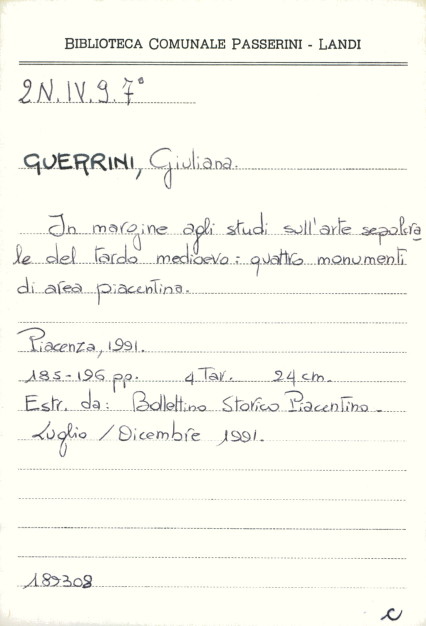 BIBLIOTECA COMUNALE PASSERINI - LANDI
2N.IV.9.7°
GUERRINI, Giuliana.
In margine agli studi sull'arte sepolcra
le del tardo medioevo: quattro monumenti
di area piacentina.
Piacenza, 1991.
185-196 pp. 4 Tav. 24 cm.
Estr. da: Bollettino Storico Piacentino.
Luglio / Dicembre 1991.
189308
C